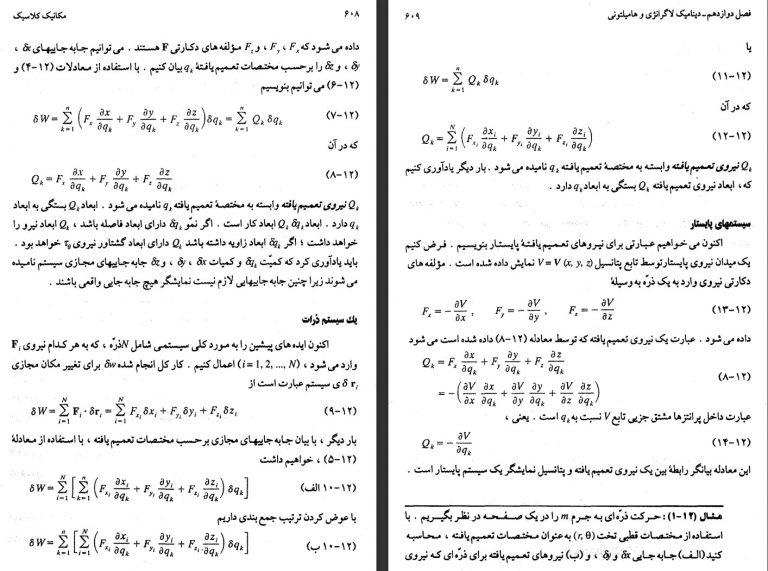 ۶۰۸
مکانیک کلاسیک
داده می‌شود که Fx ، Fy ، و Fz مؤلفه‌های دکارتی F هستند . می‌توانیم جابه‌جاییهای δx ،
δy ، و δz را برحسب مختصات تعمیم یافتهٔ qk بیان کنیم . با استفاده از معادلات (۱۲-۴) و
(۱۲-۶) می‌توانیم بنویسیم
δW = Σ_{k=1}^{n} (Fx ∂x/∂qk + Fy ∂y/∂qk + Fz ∂z/∂qk) δqk = Σ_{k=1}^{n} Qk δqk (۱۲-۷)
که در آن
Qk = Fx ∂x/∂qk + Fy ∂y/∂qk + Fz ∂z/∂qk (۱۲-۸)
Qk نیروی تعمیم یافته وابسته به مختصهٔ تعمیم یافته qk نامیده می‌شود . ابعاد Qk بستگی به ابعاد
qk دارد . ابعاد Qk δqk ابعاد کار است . اگر نمّو δqk دارای ابعاد فاصله باشد ، Qk ابعاد نیرو را
خواهد داشت ؛ اگر δqk ابعاد زاویه داشته باشد Qk دارای ابعاد گشتاور نیروی τθ خواهد بود .
باید یادآوری کرد که کمیّت δqk و کمیات δx ، δy ، و δz جابه جاییهای مجازی سیستم نامیده
می شوند زیرا چنین جابه جاییهایی لازم نیست نمایشگر هیچ جابه جایی واقعی باشند .
یك سیستم ذرات
اکنون ایده‌های پیشین را به مورد کلی سیستمی شامل N ذرّه ، که به هر کدام نیروی Fi
وارد می‌شود ، (i = 1, 2, ..., N) اعمال کنیم . کار کل انجام شده δw برای تغییر مکان مجازی
δ ri ی سیستم عبارت است از
δW = Σ_{i=1}^{N} Fi · δri = Σ_{i=1}^{N} Fxi δxi + Fyi δyi + Fzi δzi (۱۲-۹)
بار دیگر ، با بیان جابه جاییهای مجازی برحسب مختصات تعمیم یافته ، با استفاده از معادلهٔ
(۱۲-۵) ، خواهیم داشت
δW = Σ_{i=1}^{N} [Σ_{k=1}^{n} (Fxi ∂xi/∂qk + Fyi ∂yi/∂qk + Fzi ∂zi/∂qk) δqk] (۱۲-۱۰ الف)
با عوض کردن ترتیب جمع بندی داریم
δW = Σ_{k=1}^{n} [Σ_{i=1}^{N} (Fxi ∂xi/∂qk + Fyi ∂yi/∂qk + Fzi ∂zi/∂qk) δqk] (۱۲-۱۰ ب)
فصل دوازدهم - دینامیک لاگرانژی و هامیلتونی
۶۰۹
یا
δW = Σ_{k=1}^{n} Qk δqk (۱۲-۱۱)
که در آن
Qk = Σ_{i=1}^{N} (Fxi ∂xi/∂qk + Fyi ∂yi/∂qk + Fzi ∂zi/∂qk) (۱۲-۱۲)
Qk نیروی تعمیم یافته وابسته به مختصهٔ تعمیم یافته qk نامیده می‌شود . بار دیگر یادآوری کنیم
که ، ابعاد نیروی تعمیم یافته Qk بستگی به ابعاد qk دارد .
سیستمهای پایستار
اکنون می خواهیم عبارتی برای نیروهای تعمیم یافتهٔ پایستار بنویسیم . فرض کنیم
یک میدان نیروی پایستار توسط تابع پتانسیل V = V (x, y, z) نمایش داده شده است . مؤلفه های
دکارتی نیروی وارد به یک ذرّه به وسیلهٔ
Fx = - ∂V/∂x , Fy = - ∂V/∂y , Fz = - ∂V/∂z (۱۲-۱۳)
داده می شود . عبارت یک نیروی تعمیم یافته که توسط معادله (۱۲-۸) داده شده است می شود
Qk = Fx ∂x/∂qk + Fy ∂y/∂qk + Fz ∂z/∂qk (۱۲-۸)
= - (∂V/∂x ∂x/∂qk + ∂V/∂y ∂y/∂qk + ∂V/∂z ∂z/∂qk)
عبارت داخل پرانتزها مشتق جزیی تابع V نسبت به qk است . یعنی ،
Qk = - ∂V/∂qk (۱۲-۱۴)
این معادله بیانگر رابطهٔ بین یک نیروی تعمیم یافته و پتانسیل نمایشگر یک سیستم پایستار است .
مثال (۱۲-۱) : حرکت ذرّه‌ای به جرم m را در یک صفحه در نظر بگیریم . با
استفاده از مختصات قطبی تخت (r, θ) به عنوان مختصات تعمیم یافته ، محاسبه
کنید (الف) جابه جایی δx و δy ، و (ب) نیروهای تعمیم یافته برای ذرّه‌ای که نیروی